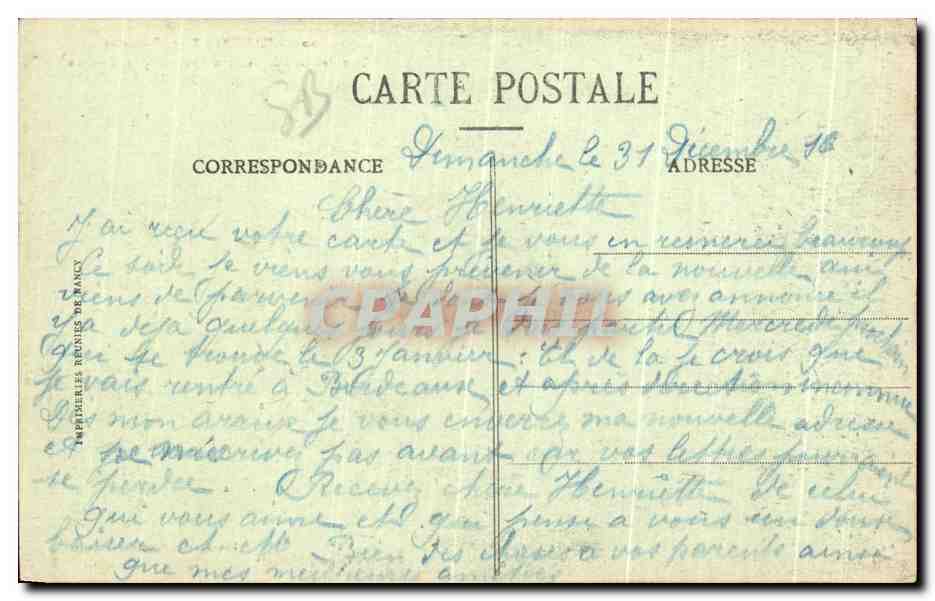 CARTE POSTALE
CORRESPONDANCE
ADRESSE
Dimanche le 31 Décembre
Chère Henriette
J'ai reçu votre carte et je vous en remercie beaucoup
Ce soir je viens vous prévenir de la nouvelle qui
viens de vous avez annoncé il
y a deja quelque Mercredi prochain
qui se trouve le 3 Janvier. Et de la je crois que
je vais rentré à Bordeaux et après direction inconnue
Dès mon je vous enverrez ma nouvelle adresse
et ne pas avant car vos lettres pourraient
se perdre. Recevez chère Henriette de celui
qui vous aime et qui pense a vous un doux
baiser et Bien des choses a vos parents ainsi
que mes meilleures amitiés
IMPRIMERIES REUNIES DE NANCY
CPAPHIL
SB